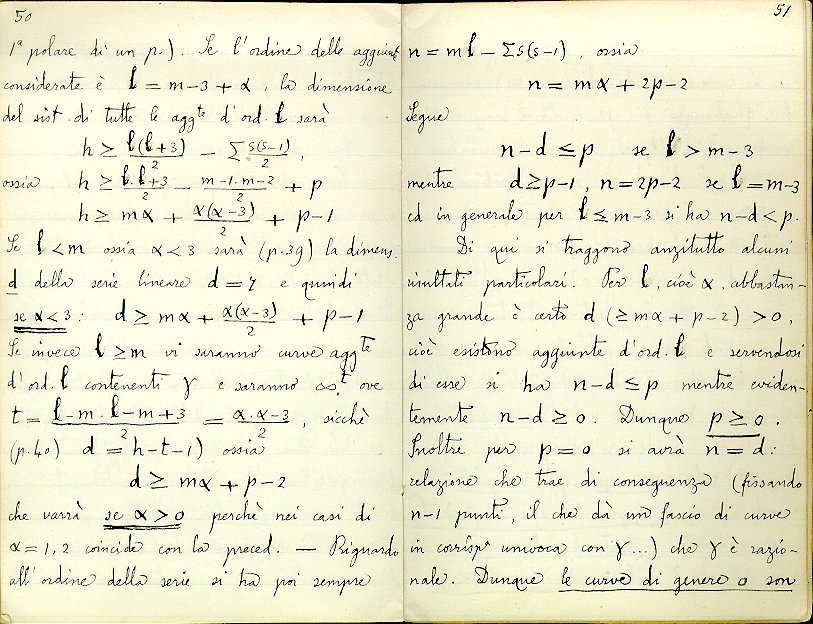 50
1ª polare di un p.) Se l'ordine delle aggiunte
considerate è l = m-3+α, la dimensione
del sist. di tutte le aggte d'ord. l sarà
h ≥ l(l+3)/2 - Σ s(s-1)/2,
ossia h ≥ l.l+3/2 - m-1.m-2/2 + p
h ≥ mα + α(α-3)/2 + p-1
Se l < m ossia α < 3 sarà (p.39) la dimens.
d della serie lineare d = h e quindi
se α < 3: d ≥ mα + α(α-3)/2 + p-1
Se invece l ≥ m vi saranno curve aggte
d'ord. l contenenti γ e saranno ∞t ove
t = l-m.l-m+3/2 = α.α-3/2, sicchè
(p.40) d = h-t-1) ossia
d ≥ mα + p-2
che varrà se α > 0 perchè nei casi di
α = 1,2 coincide con la preced. — Riguardo
all'ordine della serie si ha poi sempre
51
n = ml - Σs(s-1), ossia
n = mα + 2p-2
Segue
n-d ≤ p se l > m-3
mentre d ≥ p-1, n = 2p-2 se l = m-3
ed in generale per l ≤ m-3 si ha n-d < p.
Di qui si traggono anzitutto alcuni
risultati particolari. Per l, cioè α, abbastan-
za grande è certo d (≥ mα + p-2) > 0,
cioè esistono aggiunte d'ord. l e servendosi
di esse si ha n-d ≤ p mentre eviden-
temente n-d ≥ 0. Dunque p ≥ 0.
Inoltre per p = 0 si avrà n = d:
relazione che trae di conseguenza (fissando
n-1 punti, il che dà un fascio di curve
in corrispª univoca con γ...) che γ è razio-
nale. Dunque le curve di genere 0 son